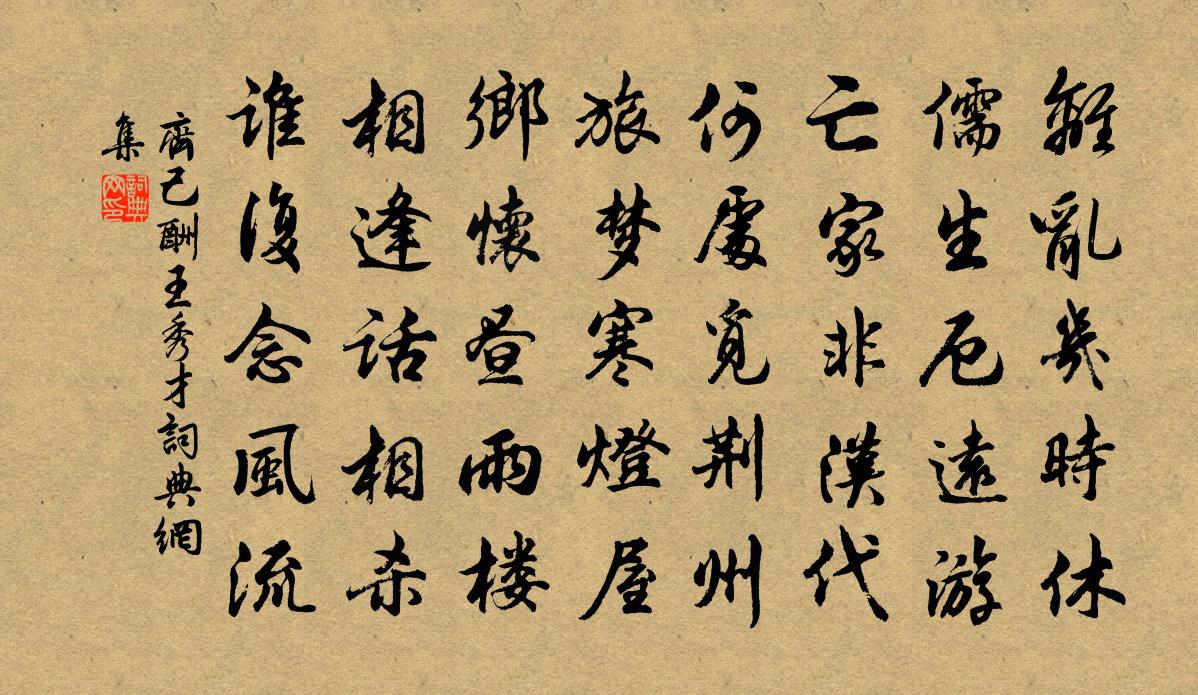 離亂幾時休
儒生厄遠游
亡家非漢代
何處覓荆州
旅梦寒燈屋
鄉懷昼雨楼
相逢話相杀
誰復念風流
齊己酬王秀才詞典網
集
詞典
网印